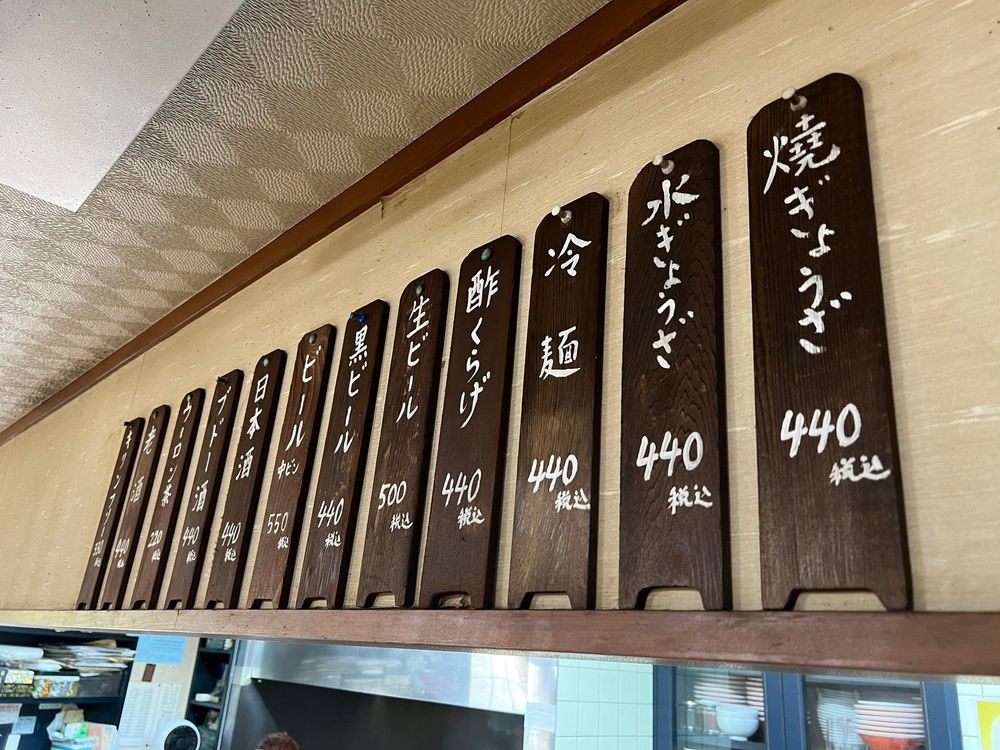 焼ぎょうざ
440
税込
水ぎょうざ
440
税込
冷麺
440
税込
酢くらげ
440
税込
生ビール
500
税込
黒ビール
440
税込
ビール
中ビン
550
税込
日本酒
440
税込
ブドー酒
440
税込
ウーロン茶
220
税込
老酒
440
税込
キリン